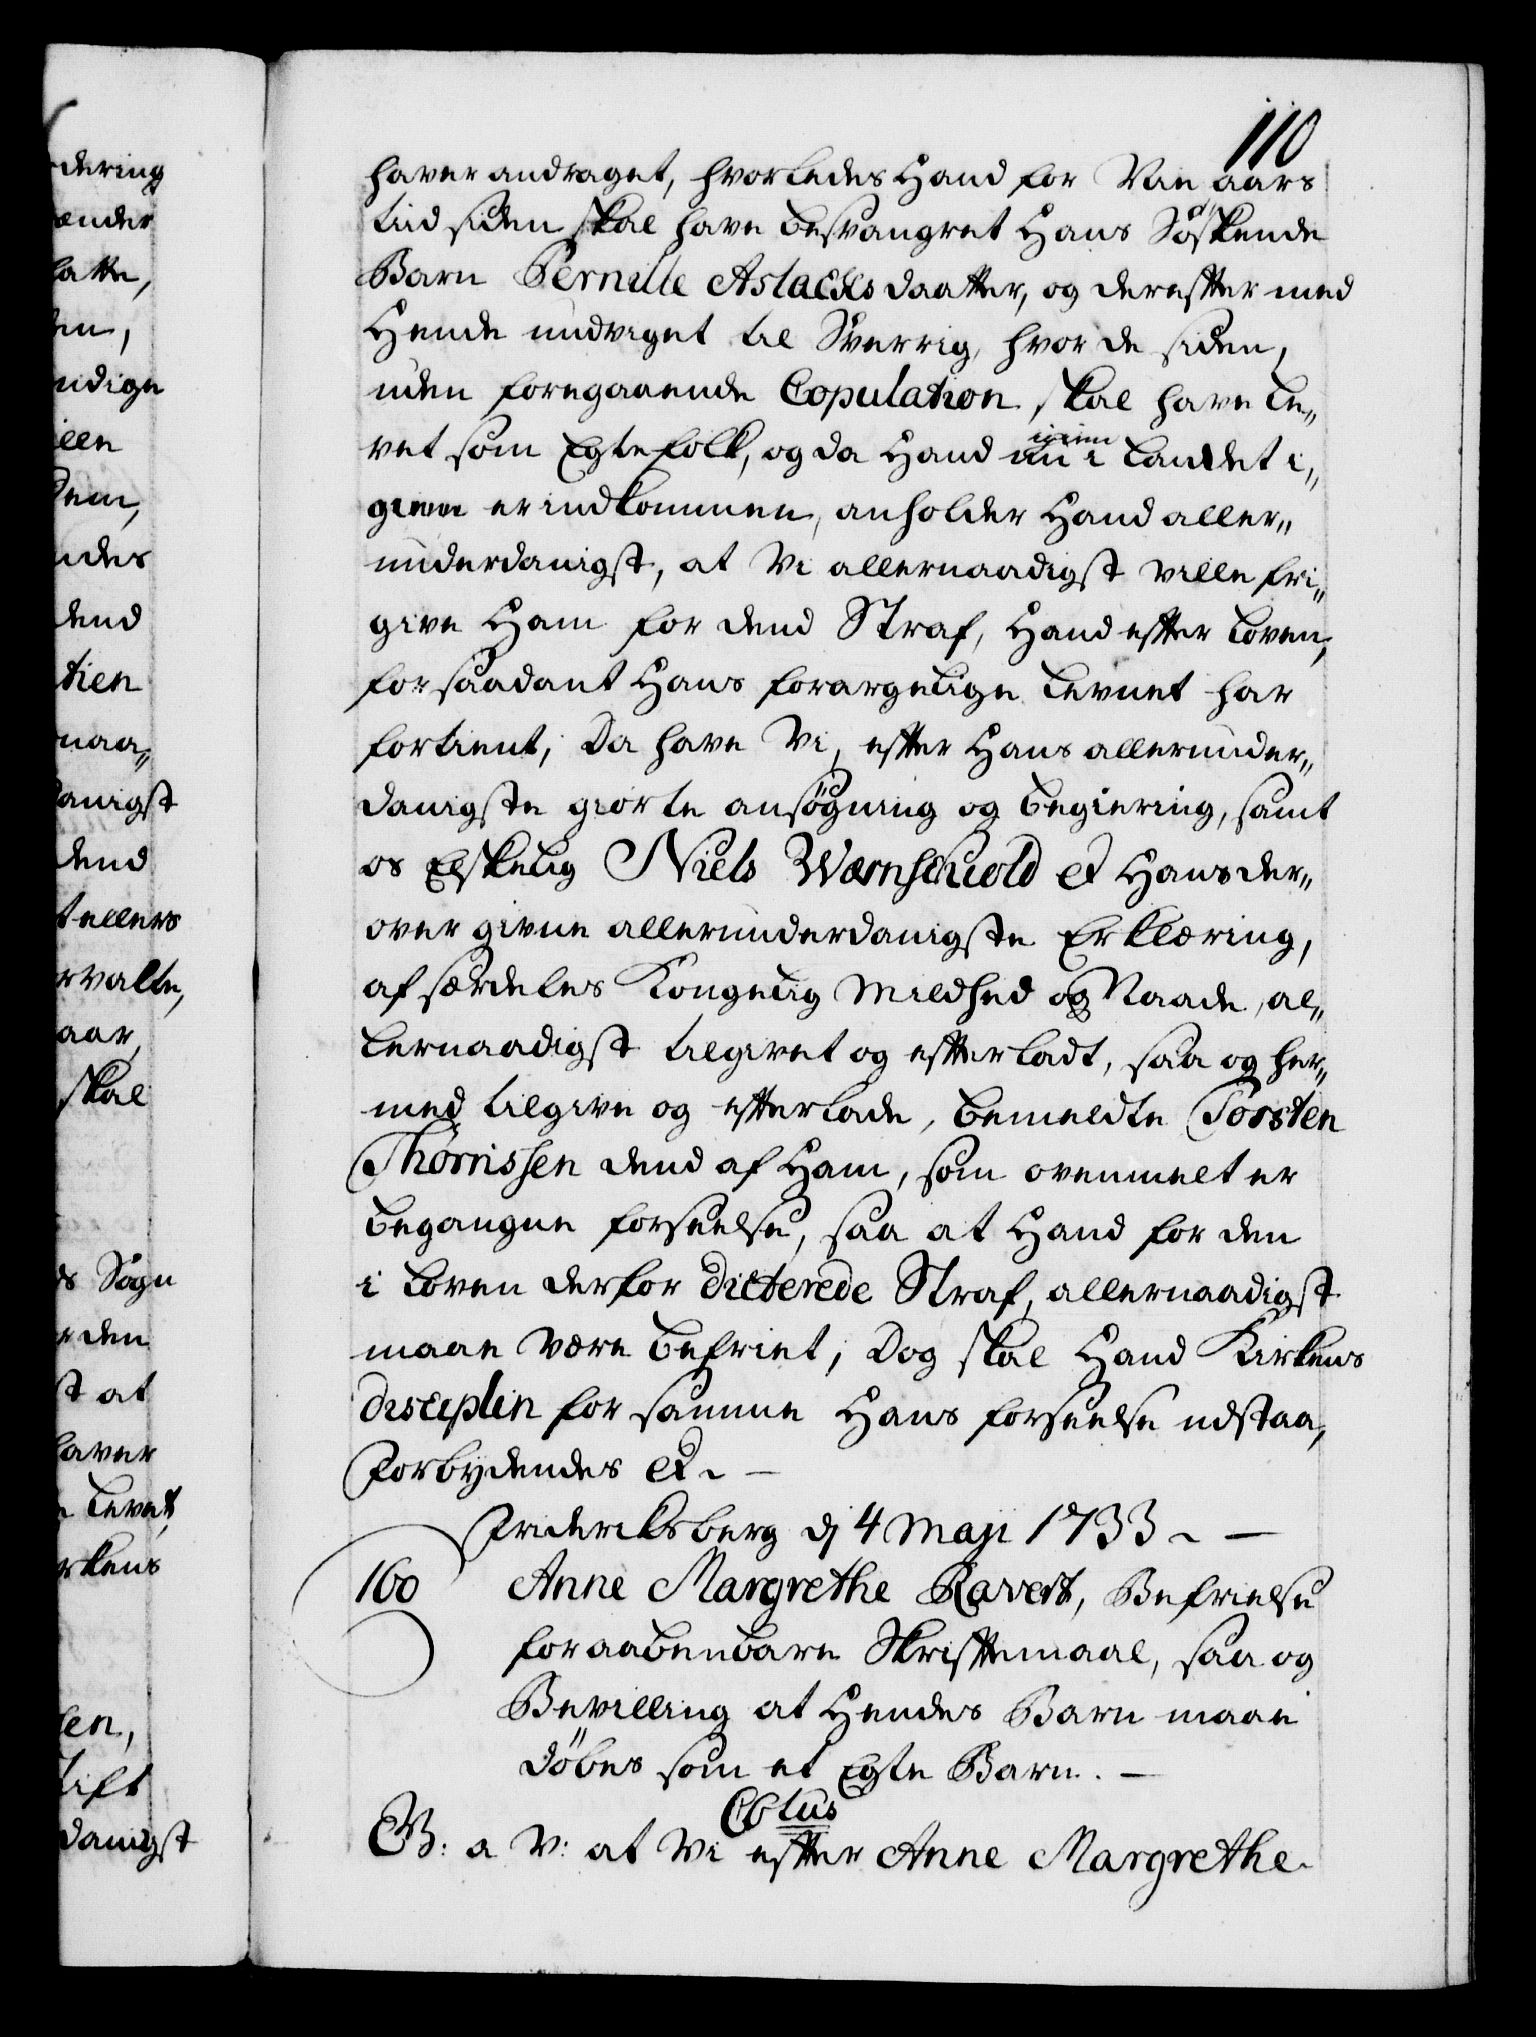 110
haver andraget, hvorledes Hand for Nie aars
tiid siden skal have besvangret Hans Søskende
Barn Pernille Aslachs daatter, og derefter med
Hende undviget til Sverrig, hvor de siden,
uden foregaaende Copulation, skal have le„
vet som Egtefolk, og da Hand nu i Landet i„
gien er indkommen, anholder Hand aller„
underdanigst, at Vi allernaadigst ville fri„
give Ham for dend Straf, Hand efter Loven,
for saadant Hans forargelige Levnet har
fortient; Da have Vi, efter Hans allerunder„
danigste giorte ansøgning og begiering, samt
os Elskelig Niels Wærnschiold et Hans der„
over givne allerunderdanigste Erklæring,
af særdeles Kongelig Mildhed og Naade, al„
lernaadigst tilgivet og efterladt, saa og her„
med tilgive og efterlade, bemeldte Torsten
Thørrissen dend af Ham, som ovenmelt er
begangne forseelse, saa at Hand for den
i Loven derfor dicterede Straf, allernaadigst
maae være befriet; Dog skal Hand Kirkens
disciplin for samme Hans forseelse udstaa,
Forbydendes et. —
Friderichsberg dj 4 Maji 1733. —
160 Anne Margrethe Ravert, Befrielse
for aabenbare Skriftemaal, saa og
Bevilling at Hendes Barn maae
døbes som et Egte Barn. —
C6tus
G: a V: at Vi efter Anne Margrethe